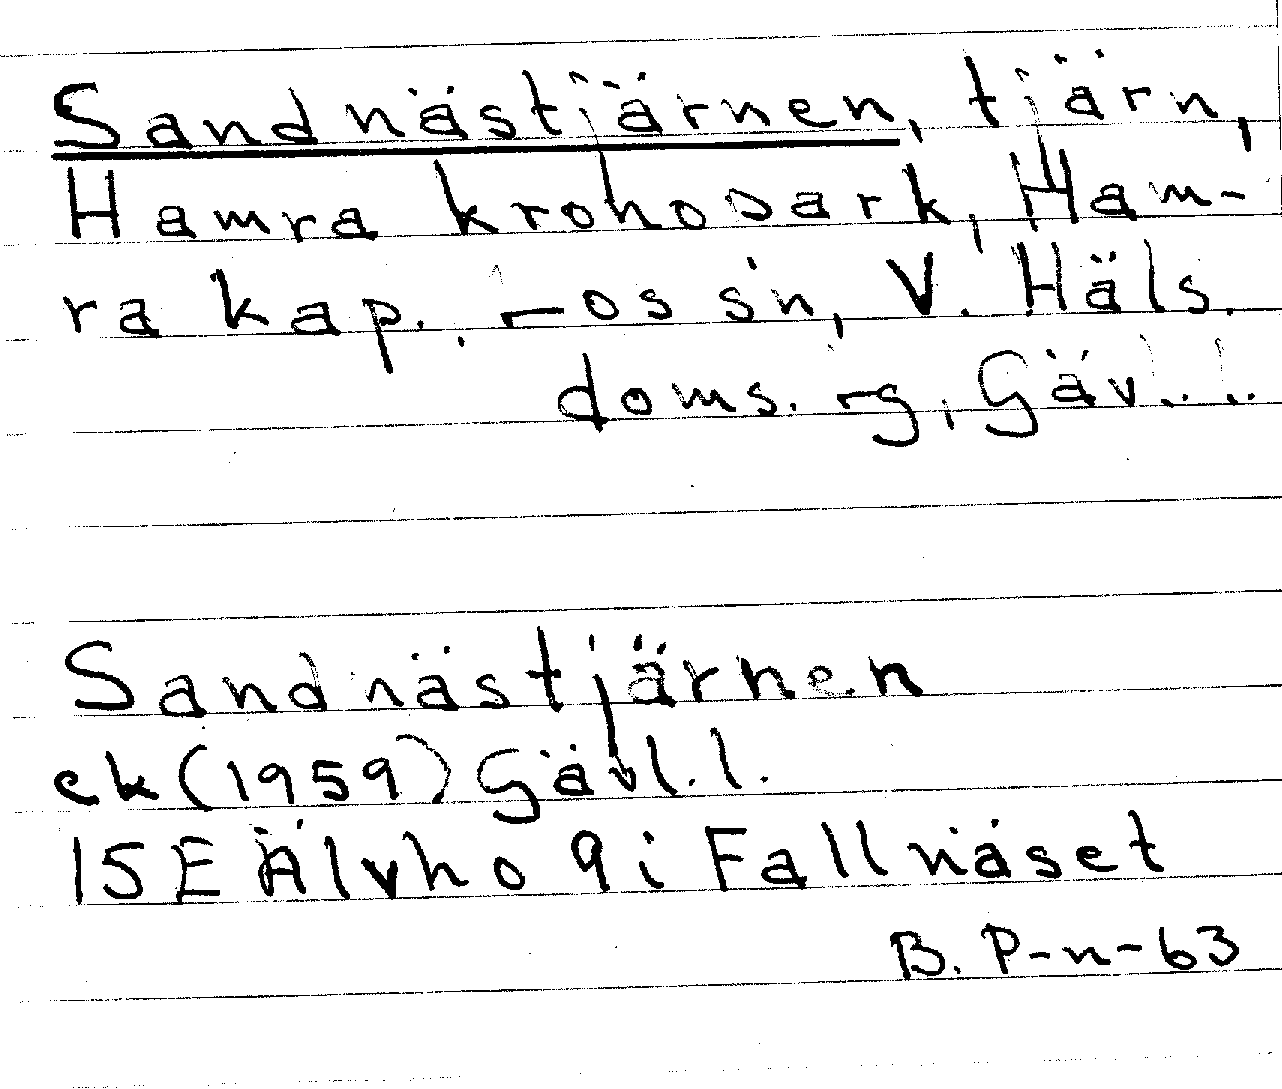 Sandnästjärnen, tjärn,
Hamra kronopark, Ham-
ra kap. -os sn, V. Häls.
doms. -g, Gävl. l.
Sandnästjärnen
ek (1959) Gävl. l.
15E Älvho 9i Fallnäset
B. P-n-63